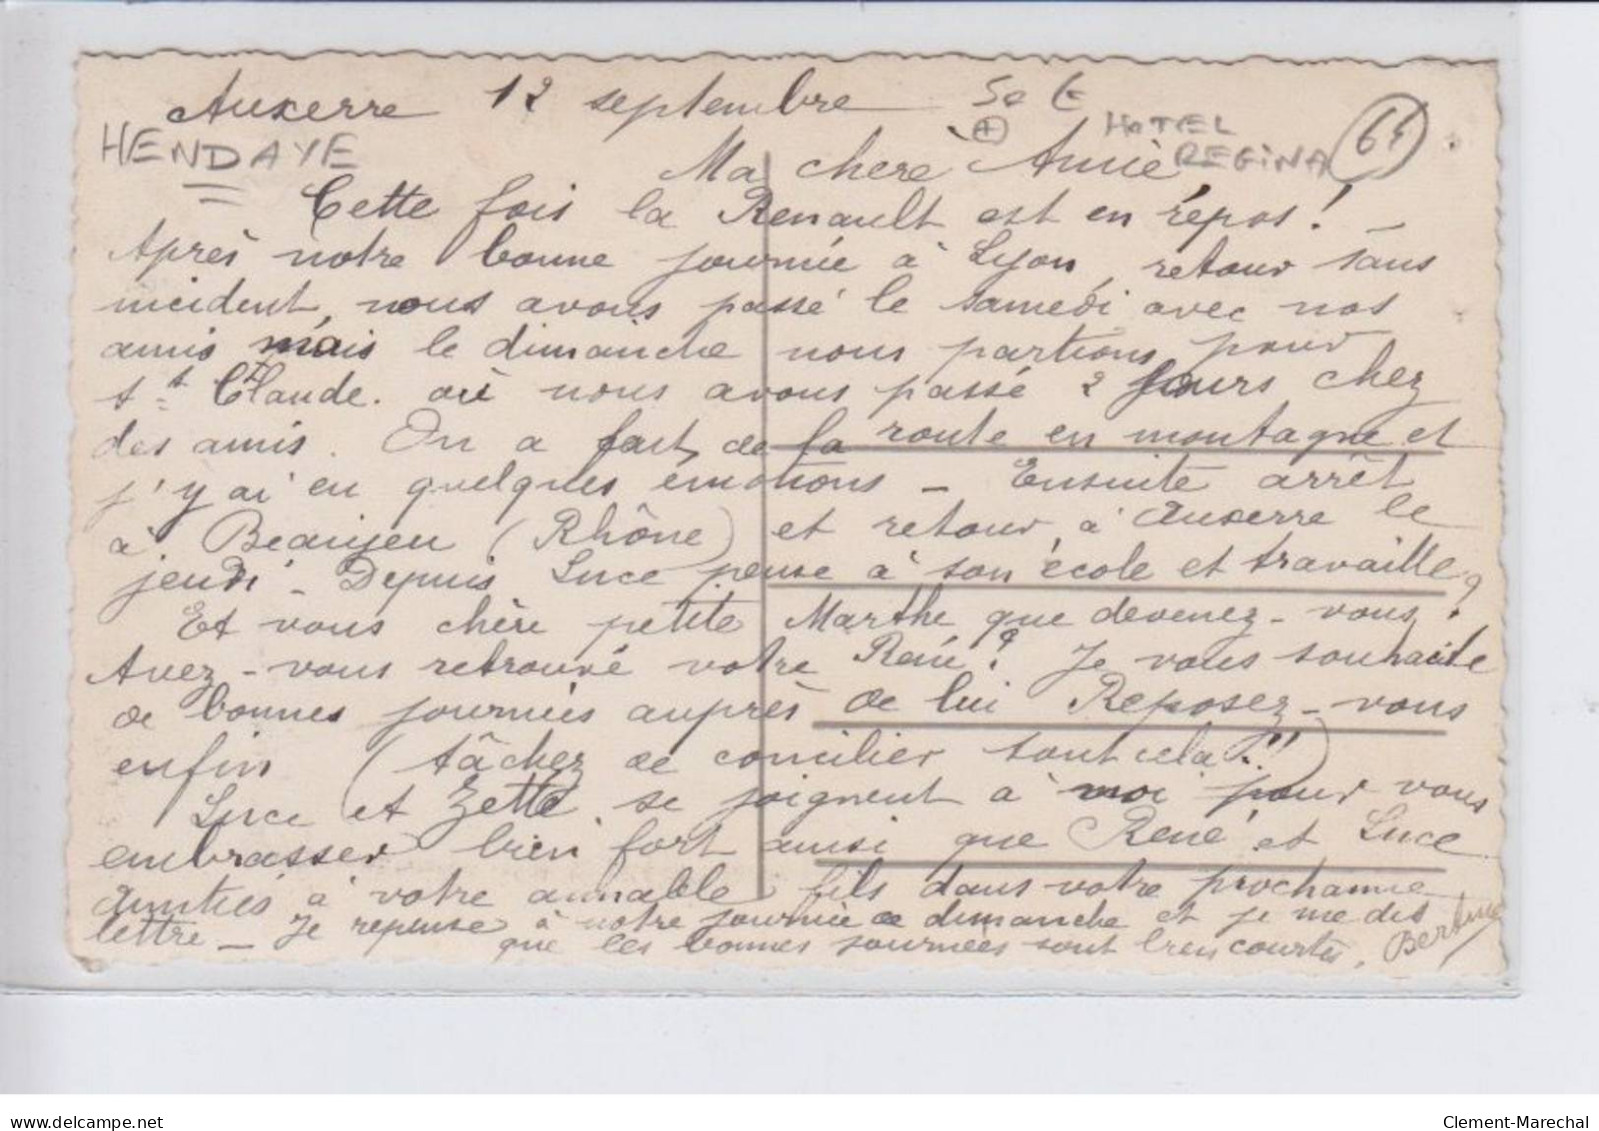 Auxerre 12 septembre
50 E
HENDAYE
HOTEL
REGINA
64
Ma chère Amie
Cette fois la Renault est en repos! -
Après notre bonne journée à Lyon, retour sans
incident, nous avons passé le samedi avec nos
amis mais le dimanche nous partions pour
St Claude. où nous avons passé 2 jours chez
des amis. On a fait de la route en montagne et
j'y ai eu quelques émotions - Ensuite arrêt
à Beaujeu (Rhône) et retour à Auxerre le
jeudi - Depuis Luce pense à son école et travaille.
Et vous chère petite Marthe que devenez-vous?
Avez-vous retrouvé votre René? Je vous souhaite
de bonnes journées auprès de lui Reposez-vous
enfin (tâchez de concilier tout cela!!)
Luce et Zette se joignent à moi pour vous
embrasser bien fort ainsi que René et Luce
Amitiés à votre aimable fils dans votre prochaine
lettre - Je repense à notre journée de dimanche et je me dis
que les bonnes journées sont bien courtes.
Clement-Marechal
delcampe.net